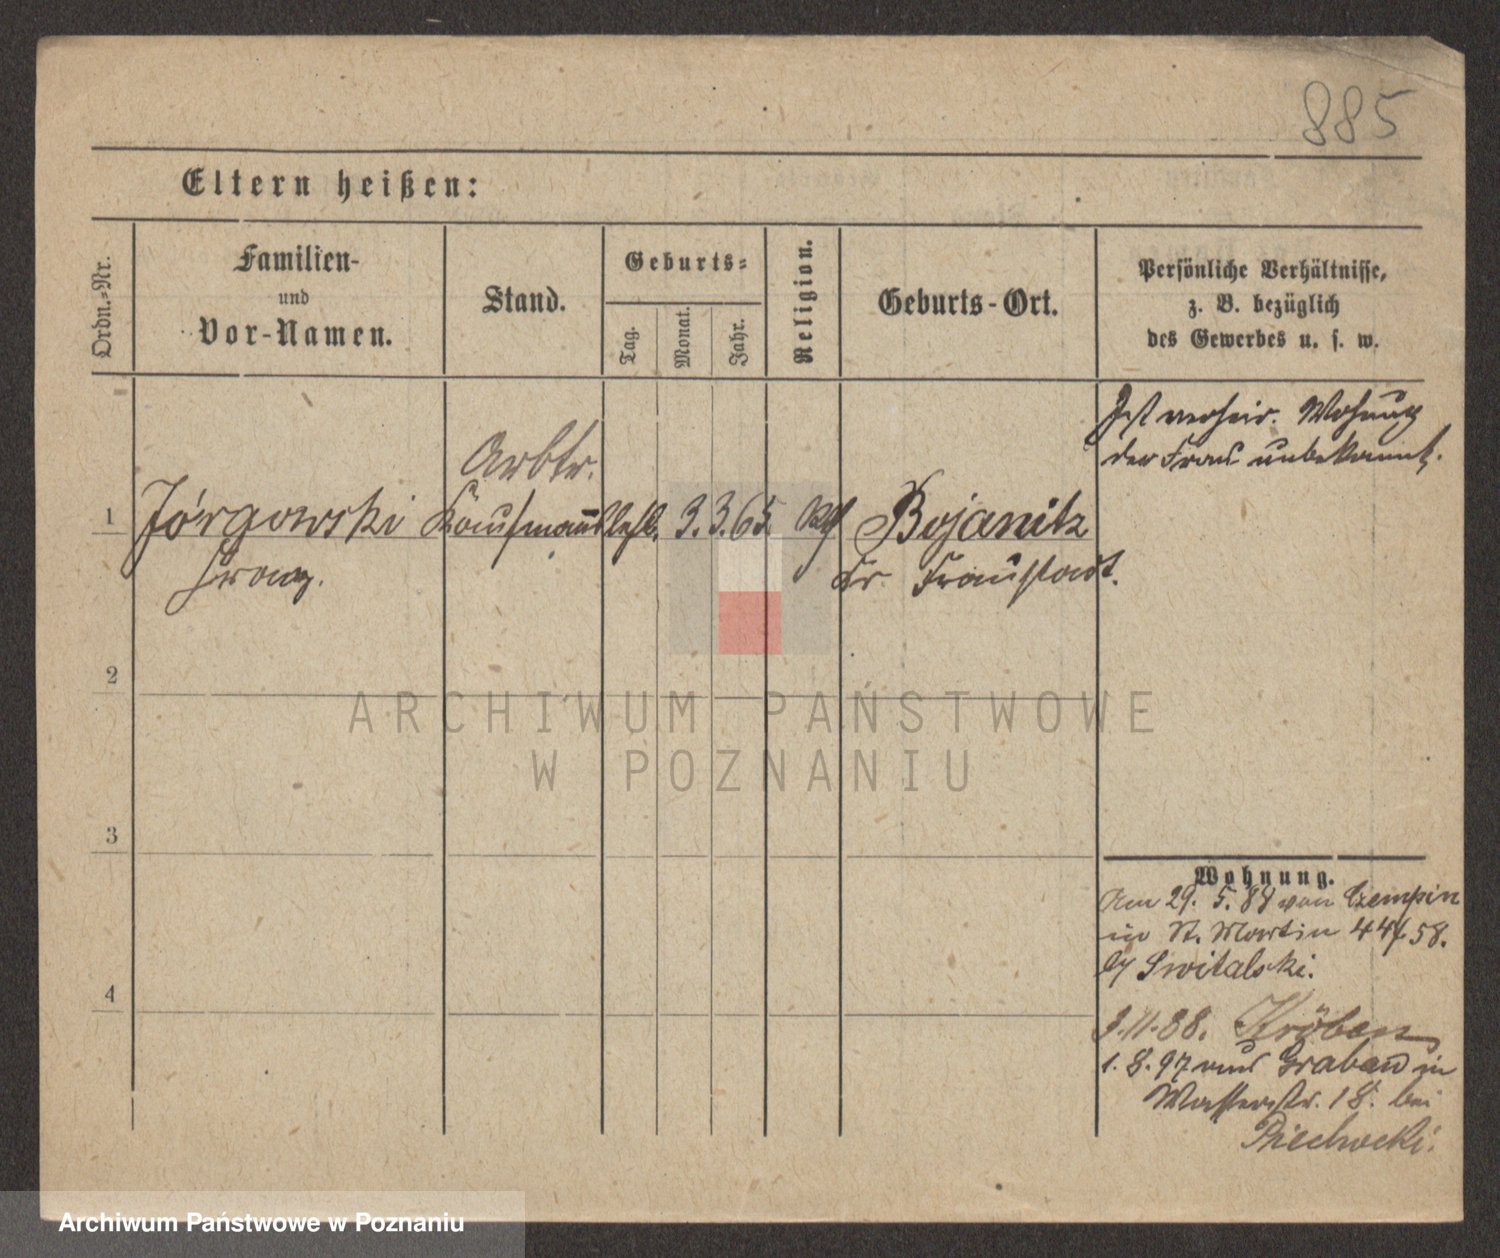 885
Eltern heißen:
Ordn.-Nr.
Familien-
und
Vor-Namen.
Stand.
Geburts-
Tag.
Monat.
Jahr.
Religion.
Geburts-Ort.
Persönliche Verhältnisse,
z. B. bezüglich
des Gewerbes u. s. w.
Ist verheir. Wohnung
der Frau unbekannt.
Arbtr.
1 Jórgowski Kaufmannslehrl. 3. 3. 65. Bojanitz
Franz. Kr. Fraustadt.
2
ARCHIWUM PAŃSTWOWE
W POZNANIU
3
Wohnung.
Am 29. 5. 88 von Czempin
in St. Martin 44/58.
by Switalski.
3.11.88. Kröben
1. 8. 97 aus Graben in
4
Wasserstr. 18. bei
Piechocki.
Archiwum Państwowe w Poznaniu